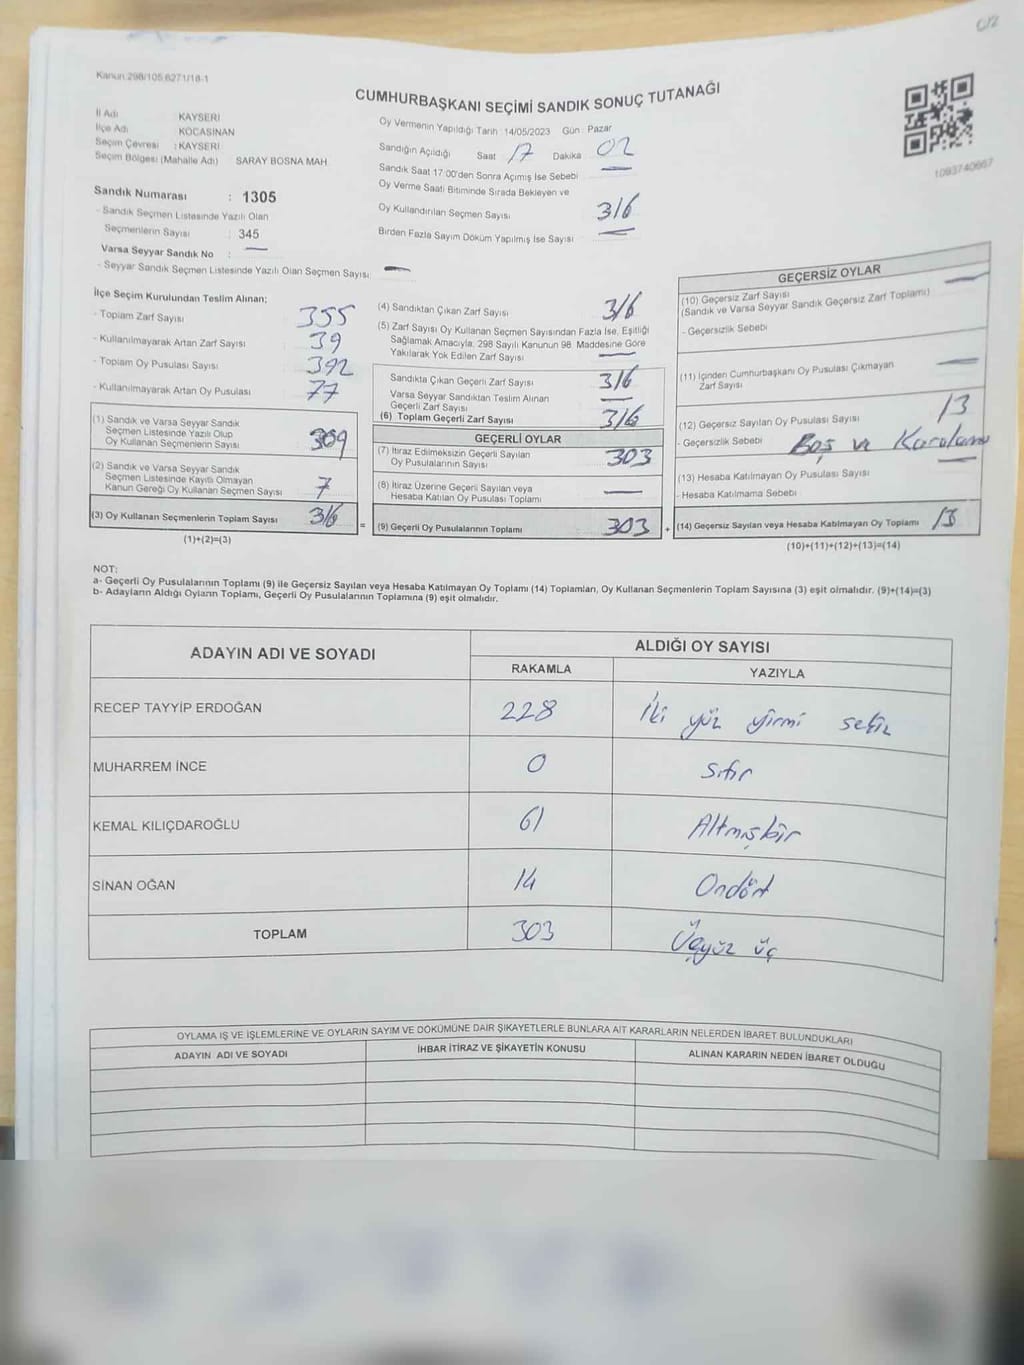 C/2
Kanun:298/105,6271/18-1
CUMHURBAŞKANI SEÇİMİ SANDIK SONUÇ TUTANAĞI
İl Adı KAYSERİ
İlçe Adı KOCASİNAN
Seçim Çevresi : KAYSERİ
Seçim Bölgesi (Mahalle Adı) SARAY BOSNA MAH.
Sandık Numarası : 1305
- Sandık Seçmen Listesinde Yazılı Olan
Seçmenlerin Sayısı : 345
Varsa Seyyar Sandık No : —
- Seyyar Sandık Seçmen Listesinde Yazılı Olan Seçmen Sayısı: —
Oy Vermenin Yapıldığı Tarih : 14/05/2023 Gün : Pazar
Sandığın Açıldığı Saat 17 Dakika 02
Sandık Saat 17:00'den Sonra Açılmış İse Sebebi —
Oy Verme Saati Bitiminde Sırada Bekleyen ve
Oy Kullandırılan Seçmen Sayısı 316
Birden Fazla Sayım Döküm Yapılmış İse Sayısı —
1093740667
İlçe Seçim Kurulundan Teslim Alınan;
- Toplam Zarf Sayısı 355
- Kullanılmayarak Artan Zarf Sayısı 39
- Toplam Oy Pusulası Sayısı 392
- Kullanılmayarak Artan Oy Pusulası 77
(1) Sandık ve Varsa Seyyar Sandık
Seçmen Listesinde Yazılı Olup
Oy Kullanan Seçmenlerin Sayısı 309
(2) Sandık ve Varsa Seyyar Sandık
Seçmen Listesinde Kayıtlı Olmayan
Kanun Gereği Oy Kullanan Seçmen Sayısı 7
(3) Oy Kullanan Seçmenlerin Toplam Sayısı 316
(1)+(2)=(3)
(4) Sandıktan Çıkan Zarf Sayısı 316
(5) Zarf Sayısı Oy Kullanan Seçmen Sayısından Fazla İse, Eşitliği
Sağlamak Amacıyla, 298 Sayılı Kanunun 98. Maddesine Göre
Yakılarak Yok Edilen Zarf Sayısı —
Sandıkta Çıkan Geçerli Zarf Sayısı 316
Varsa Seyyar Sandıktan Teslim Alınan
Geçerli Zarf Sayısı —
(6) Toplam Geçerli Zarf Sayısı 316
GEÇERLİ OYLAR
(7) İtiraz Edilmeksizin Geçerli Sayılan
Oy Pusulalarının Sayısı 303
(8) İtiraz Üzerine Geçerli Sayılan veya
Hesaba Katılan Oy Pusulası Toplamı —
= (9) Geçerli Oy Pusulalarının Toplamı 303
GEÇERSİZ OYLAR
(10) Geçersiz Zarf Sayısı —
(Sandık ve Varsa Seyyar Sandık Geçersiz Zarf Toplamı)
- Geçersizlik Sebebi
(11) İçinden Cumhurbaşkanı Oy Pusulası Çıkmayan —
Zarf Sayısı
(12) Geçersiz Sayılan Oy Pusulası Sayısı 13
- Geçersizlik Sebebi Boş ve Karalama
(13) Hesaba Katılmayan Oy Pusulası Sayısı —
- Hesaba Katılmama Sebebi
+ (14) Geçersiz Sayılan veya Hesaba Katılmayan Oy Toplamı 13
(10)+(11)+(12)+(13)=(14)
NOT:
a- Geçerli Oy Pusulalarının Toplamı (9) ile Geçersiz Sayılan veya Hesaba Katılmayan Oy Toplamı (14) Toplamları, Oy Kullanan Seçmenlerin Toplam Sayısına (3) eşit olmalıdır. (9)+(14)=(3)
b- Adayların Aldığı Oyların Toplamı, Geçerli Oy Pusulalarının Toplamına (9) eşit olmalıdır.
ADAYIN ADI VE SOYADI ALDIĞI OY SAYISI
RAKAMLA YAZIYLA
RECEP TAYYİP ERDOĞAN 228 İki yüz yirmi sekiz
MUHARREM İNCE 0 Sıfır
KEMAL KILIÇDAROĞLU 61 Altmışbir
SİNAN OĞAN 14 Ondört
TOPLAM 303 Üçyüz üç
OYLAMA İŞ VE İŞLEMLERİNE VE OYLARIN SAYIM VE DÖKÜMÜNE DAİR ŞİKAYETLERLE BUNLARA AİT KARARLARIN NELERDEN İBARET BULUNDUKLARI
ADAYIN ADI VE SOYADI İHBAR İTİRAZ VE ŞİKAYETİN KONUSU ALINAN KARARIN NEDEN İBARET OLDUĞU